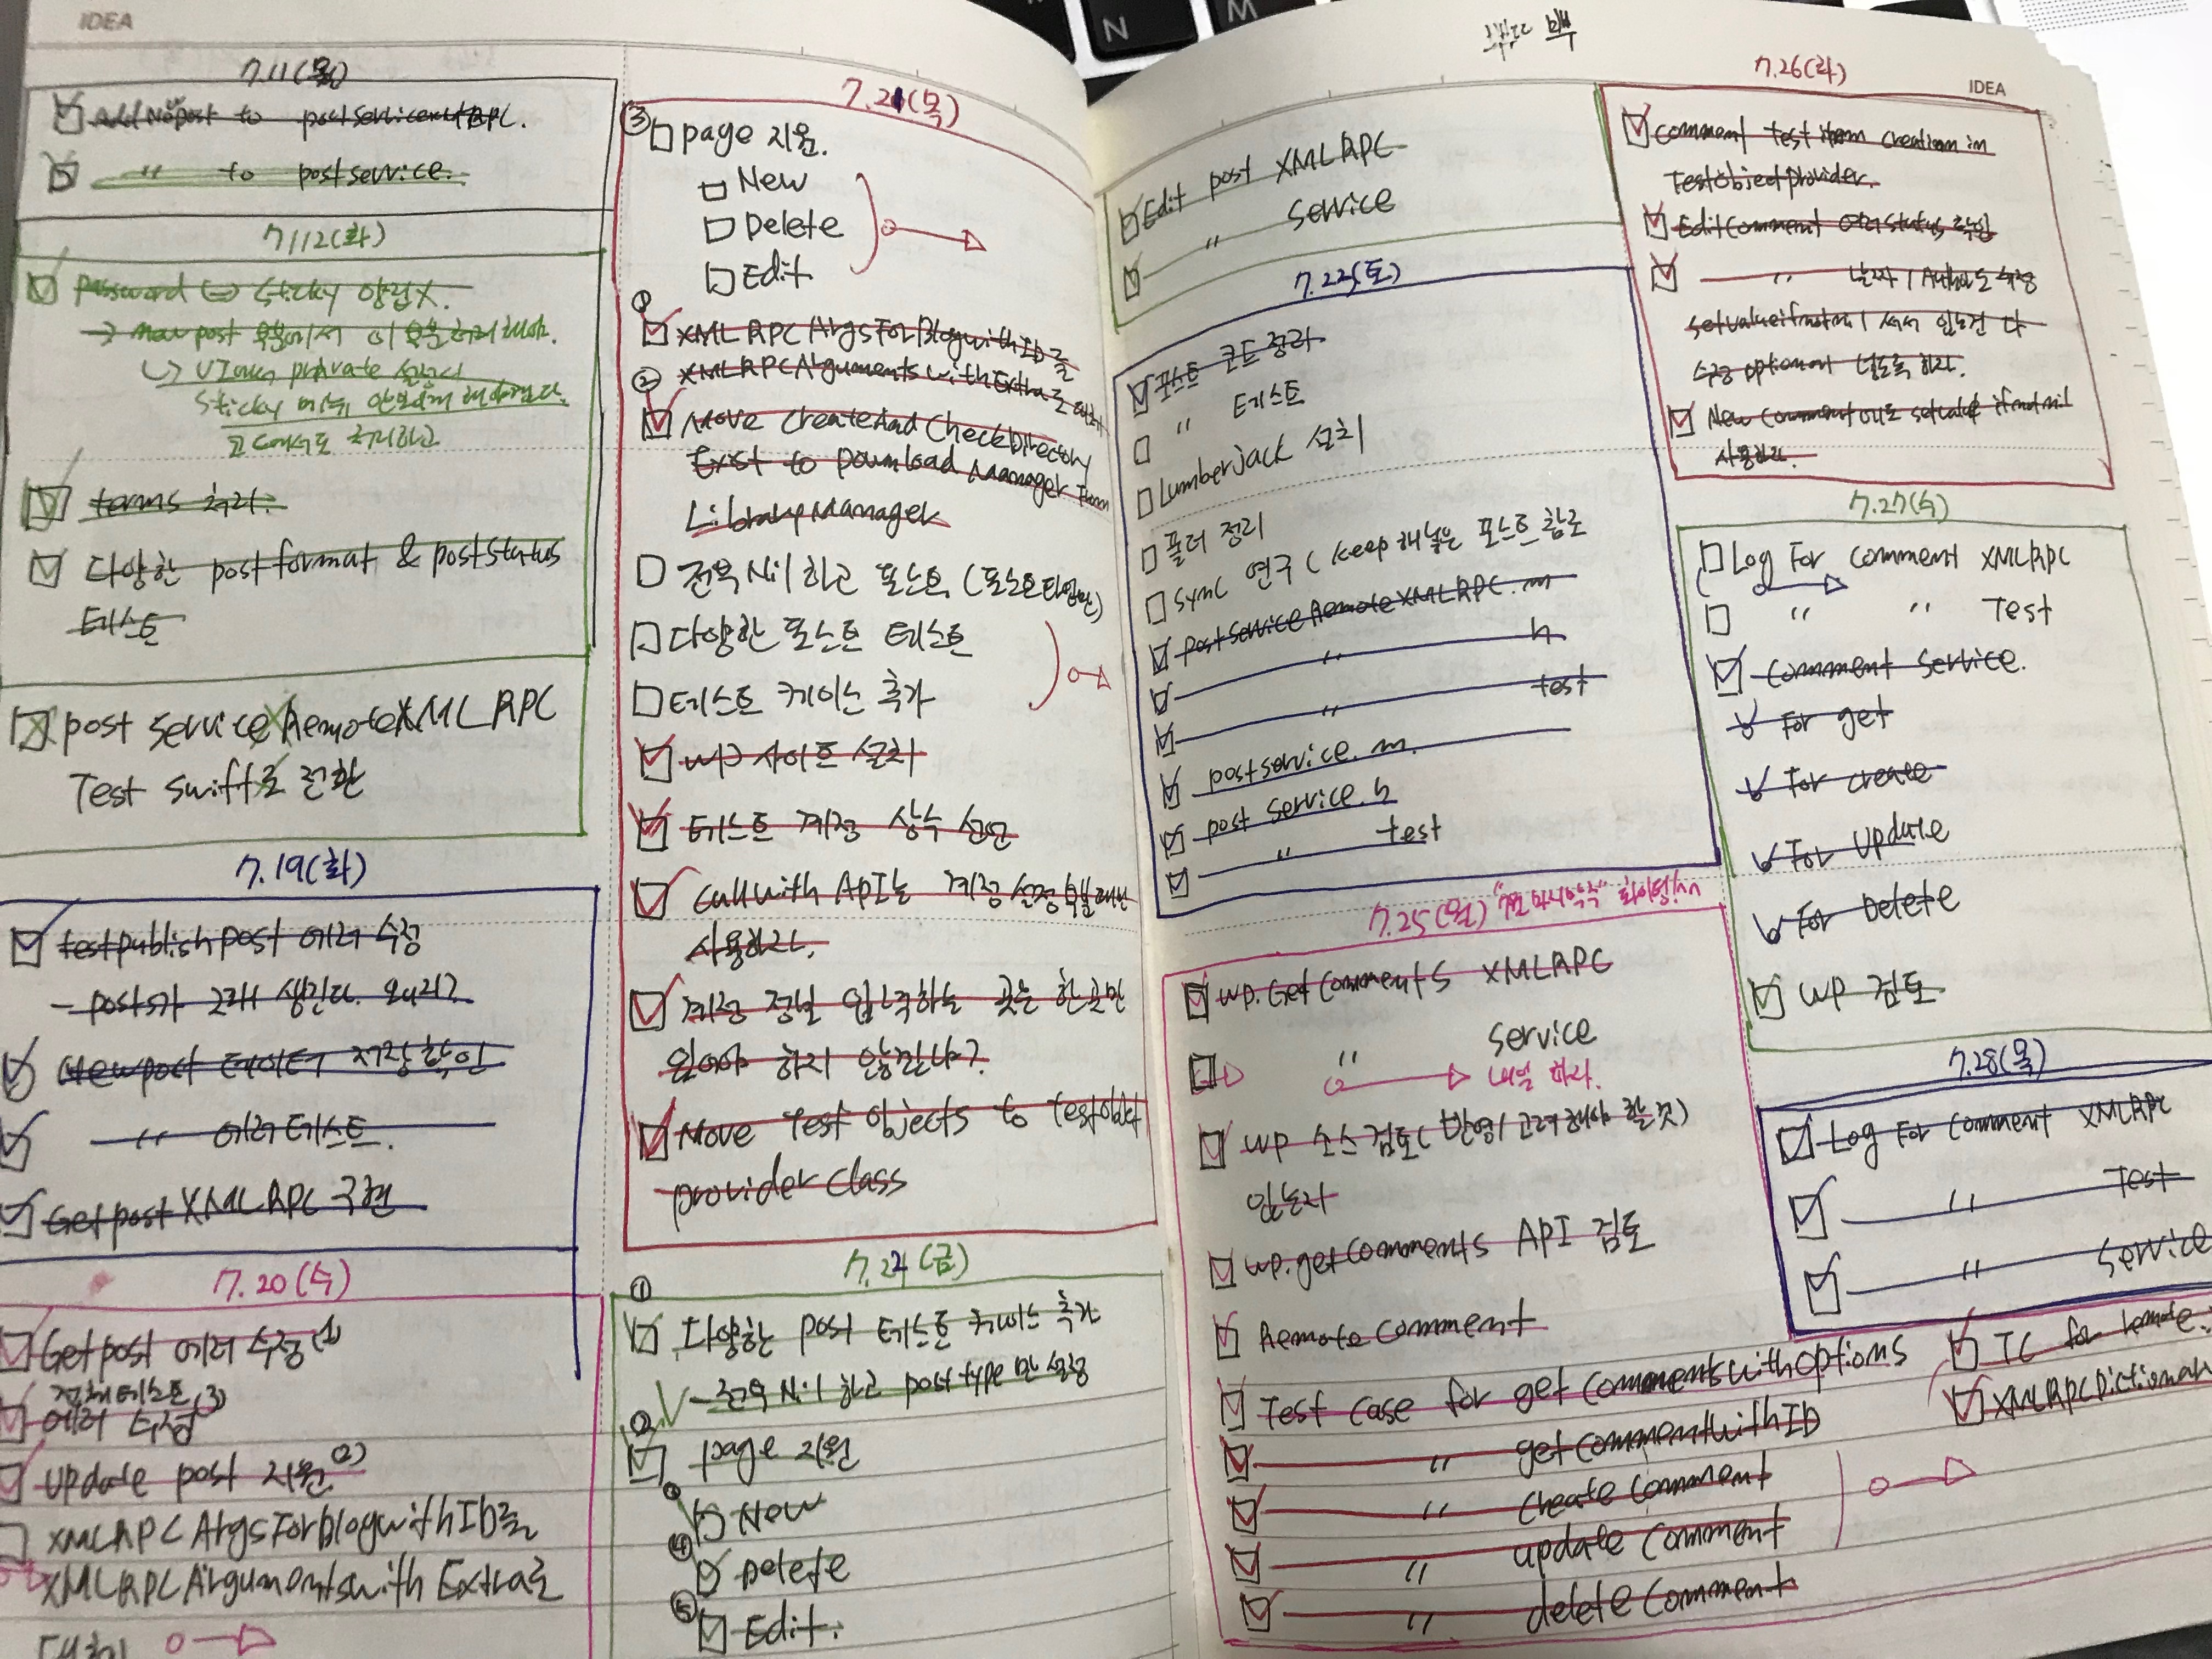 IDEA
7.11(월)
to postServiceXMLRPC.
" to postservice.
7.12(화)
password sticky 양립X.
→ new post 부분에서 이 부분 처리해야.
private
sticky
terms 처리.
다양한 post format & poststatus
테스트
post service Remote XMLRPC
Test swift로 전환
7.19(화)
testpublishpost 에러 수정
- posts가 2개 생긴다. 왜지?
Newpost 데이터 저장 확인
" 에러 테스트.
Getpost XMLRPC 구현
7.20(수)
Getpost 에러 수정(1)
전체테스트
에러 수정(3)
update post 지원(2)
XMLRPC ArgsForBlogwithID를
XMLRPC ArgumentswithExtra로
7.21(목)
③ page 지원.
New
Delete
Edit
① XMLRPC ArgsForBlogwithID를
XMLRPCArgumentswithExtra로
② Move CreateAndCheckDirectory
Exist to Download Manager From
LibraryManager
전부 Nil 하고 포스트 (포스트타입만)
다양한 포스트 테스트
테스트 케이스 추가
WP 사이트 설치
테스트 계정 상수 선언
Call with API는 계정 설정
사용하라.
계정 정보 입력하는 곳은 한 곳만
있어야 하지 않겠나?
Move Test objects to Testobject
provider class
7.22(금)
① 다양한 post 테스트 케이스 추가
- 전부 Nil 하고 post type만 설정
② page 지원
③ New
④ Delete
⑤ Edit.
Edit post XMLRPC
" Service
7.23(토)
포스트 코드 정리
" 테스트
Lumberjack 설치
폴더 정리
sync 연구 (keep 해 놓은 포스트 참조
postServiceRemoteXMLRPC.m
" h
" test
postservice.m.
post service.h
" test
7.25(월) 화이팅!^^
wp.GetComments XMLRPC
" Service
내일 하자.
WP 소스 검토 (반영/고려해야 할 것)
있는지
wp.getComments API 검토
Remote comment
Test case for getCommentswithoptions
" getCommentwithID
" Create Comment
" update Comment
" delete Comment
7.26(화)
IDEA
Comment test item creation in
TestObjectprovider.
EditComment
" 날짜 / Author도 수정
수정 option에 넣도록 하자.
New Comment
사용하라.
7.27(수)
Log For comment XMLRPC
" " Test
Comment Service.
For get
For create
For Update
For Delete
WP 검토
7.28(목)
Log For comment XMLRPC
" Test
" Service
TC for remote.
XMLRPCDictionary